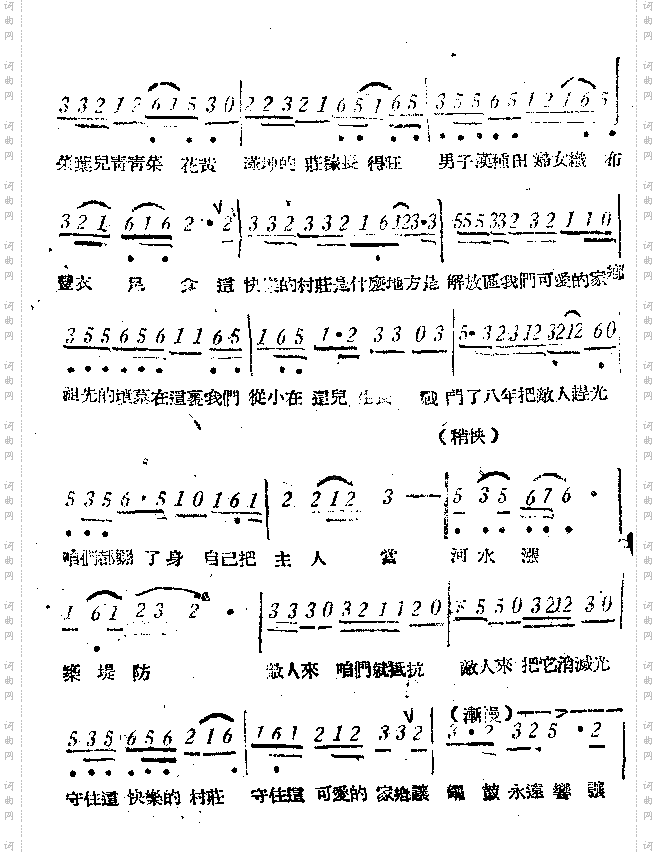 3 3 2 1 2 6 1 5 3 0 2 2 3 2 1 6 5 1 6 5 3 5 5 6 5 1 2 1 6 5
菜葉兒青青菜 花黃 的 莊稼長 得旺 男子漢種田 婦女織 布
3 2 1 6 1 6 2 · 2 3 3 2 3 3 2 1 6 1 2 3 · 3 5 5 5 3 3 2 3 2 1 1 0
豐衣 足 食 這 快樂的村莊是什麼地方是 解放區我們可愛的家鄉
3 5 5 6 5 6 1 1 6 · 5 1 6 5 1 · 2 3 3 0 3 5 · 3 2 3 1 2 3 2 1 2 6 0
祖先的墳墓在這裏我們 從小在 這兒 生長 戰 鬥了八年把敵人趕光
(稍快)
5 3 5 6 · 5 1 0 1 6 1 2 2 1 2 3 — 5 3 5 6 7 6 ·
咱們都翻 了身 自己把 主 人 當 河 水 漲
1 6 1 2 3 2 · 3 3 3 0 3 2 1 1 2 0 5 5 5 0 3 2 1 2 3 0
築 堤 防 敵人來 咱們就抵抗 敵人來 把它消滅光
(漸慢)
5 3 5 6 5 6 2 1 6 1 6 1 2 1 2 3 3 2 3 · 2 3 2 5 · 2
守住這 快樂的 村莊 守住這 可愛的 家 讓 鼓 永遠 響 讓
词曲网